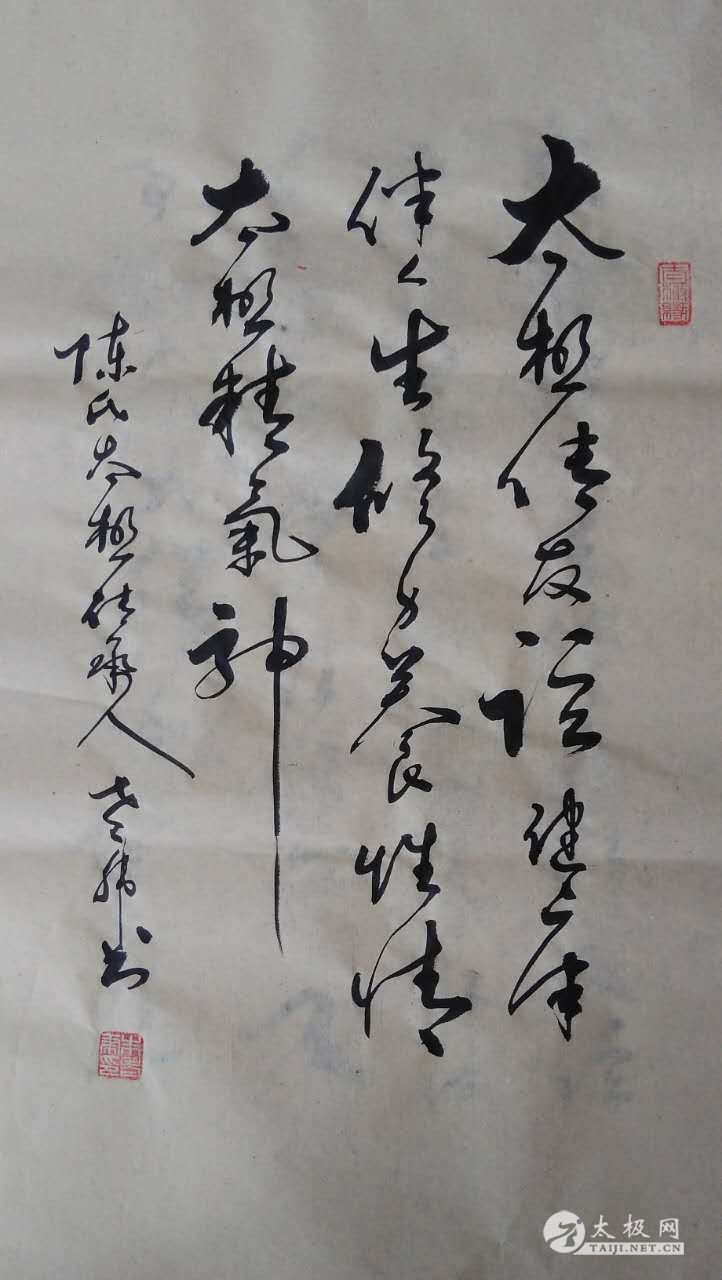 太極情友谊健
伴人生修身养性情
太極精氣神
陈氏太極传承人 书
太极网
TAIJI.NET.CN